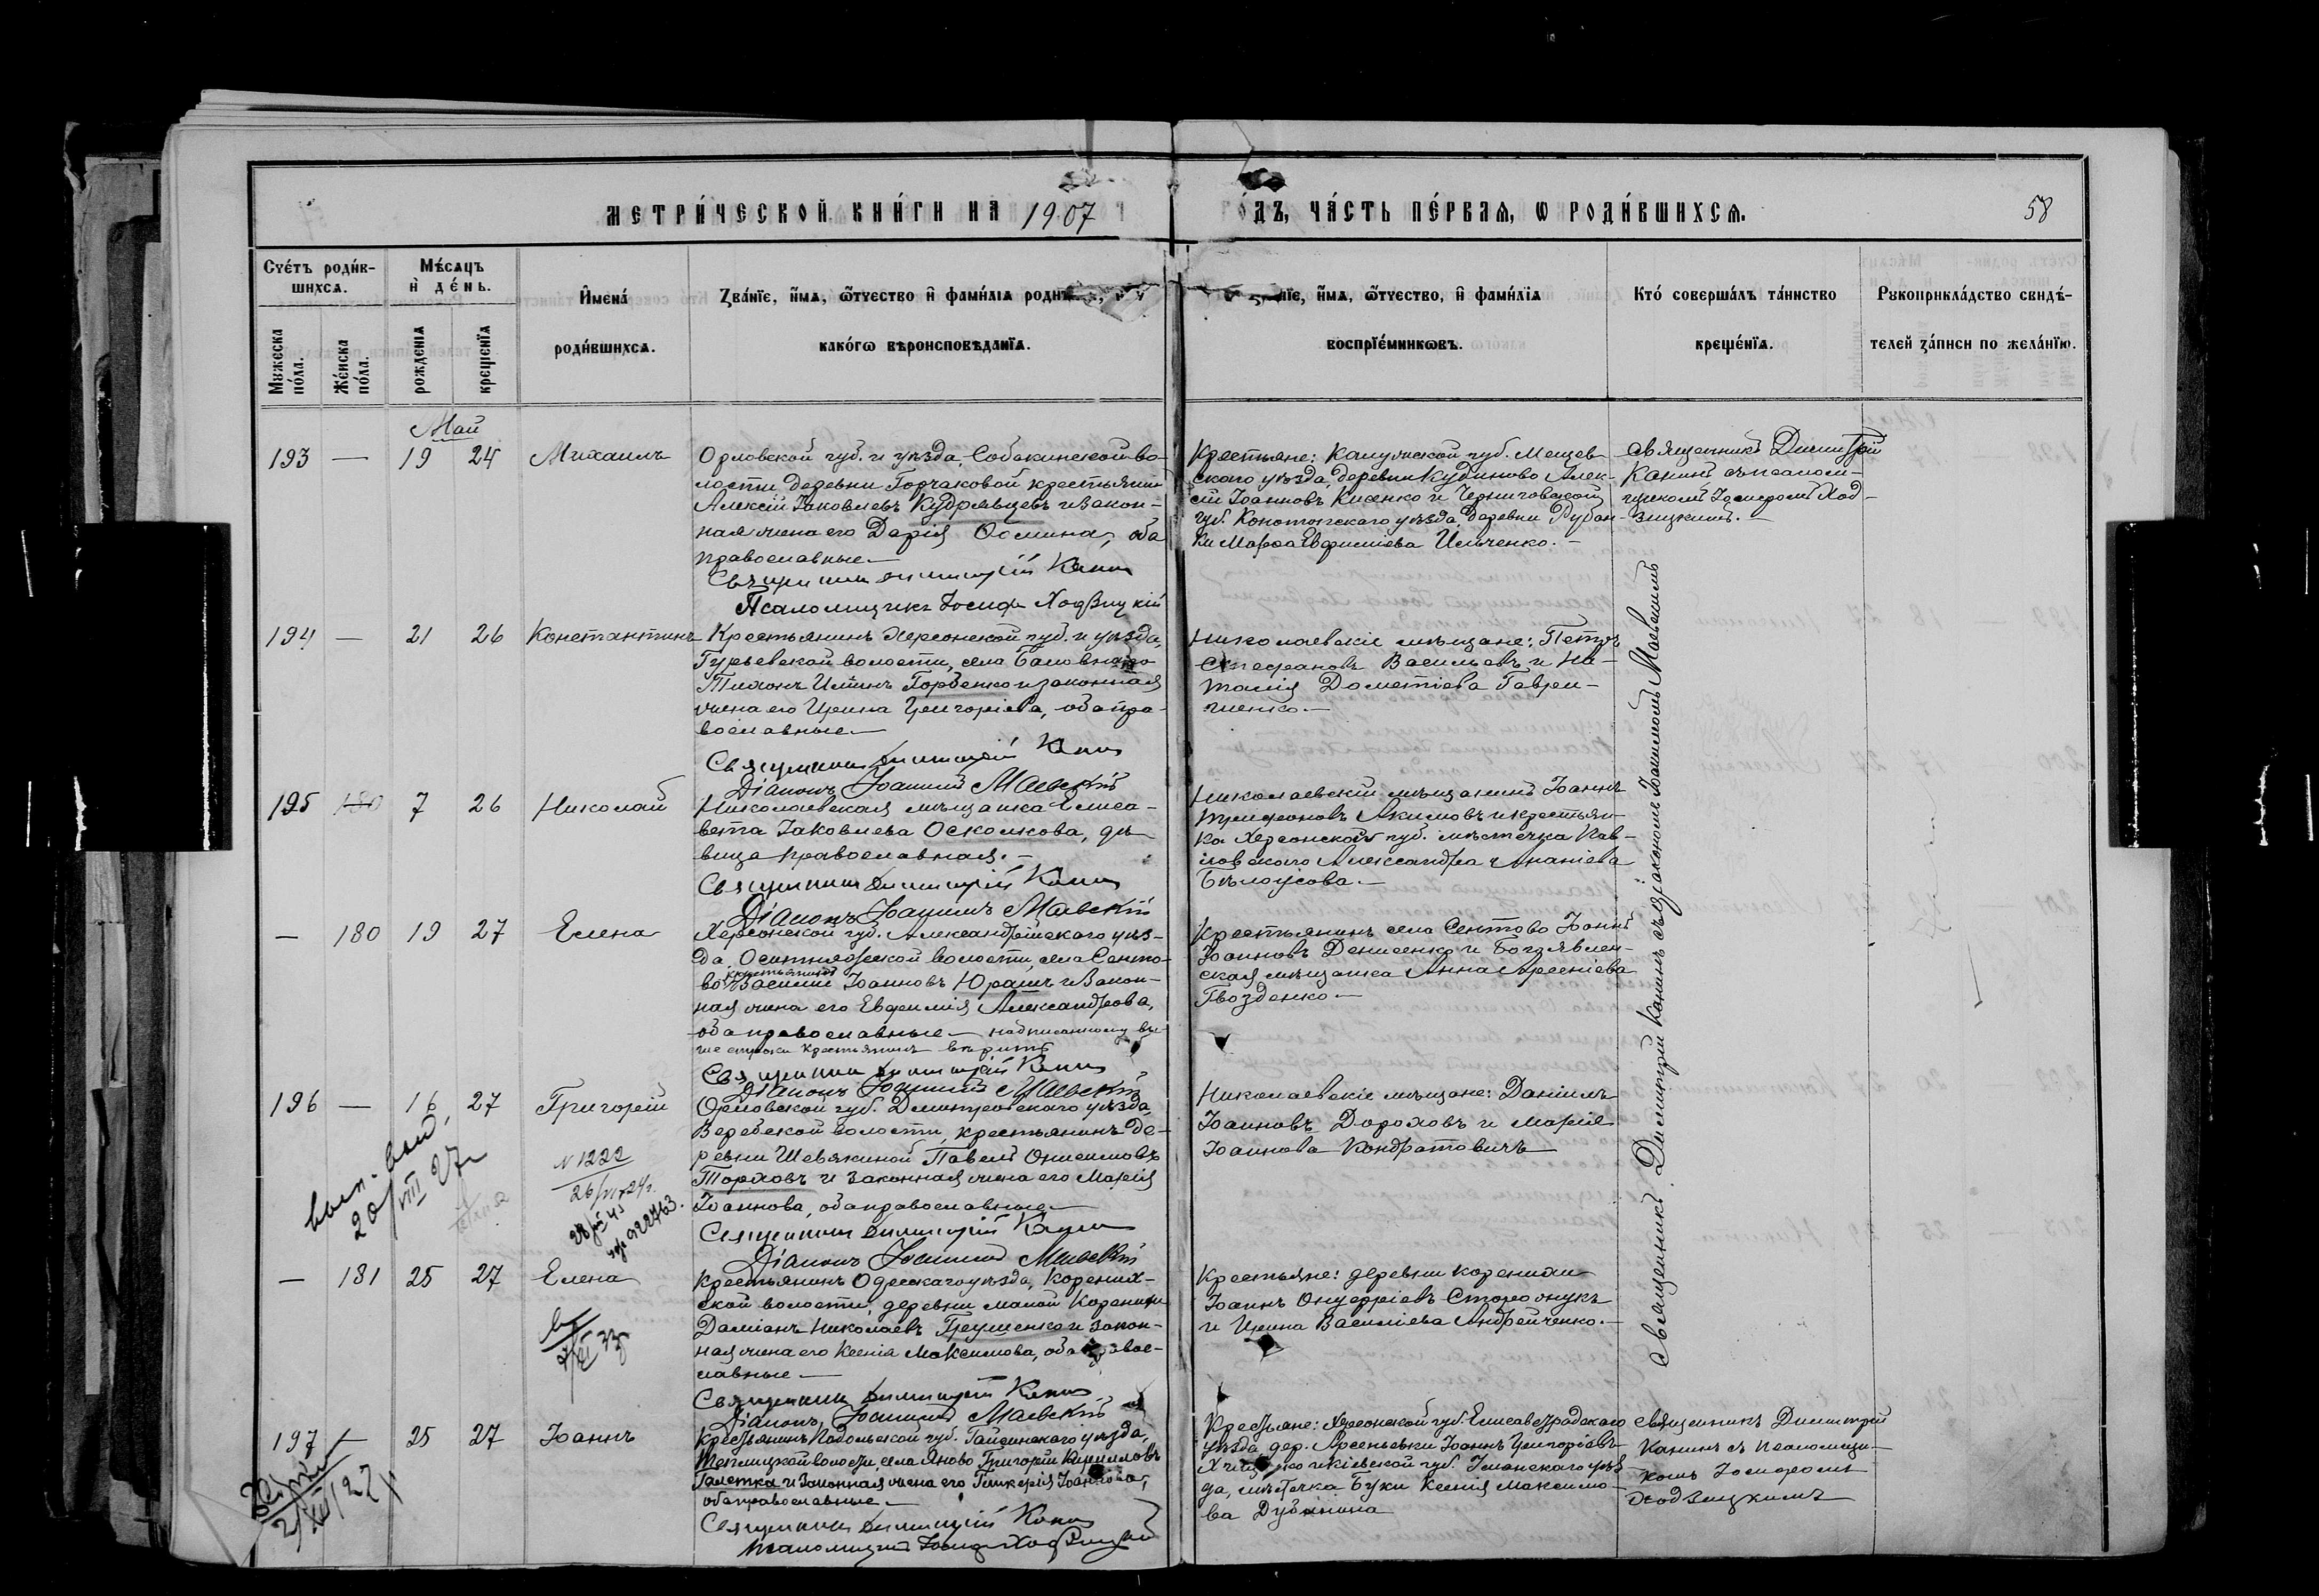 МЕТРИ́ЧЕСКОЙ КНИ́ГИ НА 1907
ГО́ДЪ, ЧА́СТЬ ПЕ́РВАѦ, Ѡ РОДИ́ВШИХСѦ.
58
Сче́тъ роди́в-
шихсѧ.
Мѣ́сѧцъ
и҆ де́нь.
Мꙋжеска
по́ла.
Же́нска
по́ла.
рожденїѧ
креще́нїѧ
И҆мена́
роди́вшихсѧ.
Зва́нїе, и҆́мѧ, ѻ҆́тчество и҆ фами́лїѧ
како́гѡ вѣроисповѣ́данїѧ.
и҆́мѧ, ѻ҆́тчество, и҆ фами́лїѧ
воспрїе́мникѡвъ.
Кто́ соверша́лъ та́инство
креще́нїѧ.
Рꙋкоприкла́дство свидѣ́-
телей за́писи по жела́нїю.
Май
193 — 19 24 Михаилъ
Орловской губ. и уѣзда, Собакинской во-
лости деревни Горчаковой крестьянинъ
Алексій Іаковлевъ Кудрявцевъ и закон-
ная жена его Дарія Ѳомина, оба
православные.—
Священникъ Димитрій Канинъ
Псаломщикъ Іосифъ Ходзицкій
Крестьяне: Калужской губ. Мещев-
скаго уѣзда, деревни Кудиново Алек-
сій Іоанновъ Кисенко и Черниговской
губ. Конотопскаго уѣзда, деревни Рубан-
ки Марѳа Евфиміева Ильченко.—
Священникъ Димитрій
Канинъ съ псалом-
щикомъ Іосифомъ Ход-
зицкимъ.—
194 — 21 26 Константинъ
Крестьянинъ Херсонской губ. и уѣзда,
Гурьевской волости, села Баловнаго
Тихонъ Илиинъ Горбенко и законная
жена его Ирина Григоріева, оба пра-
вославные.—
Священникъ Димитрій Канинъ
Діаконъ Іоакимъ Маевскій
Николаевскіе мѣщане: Петръ
Стефановъ Васильевъ и На-
талія Дометіева Гаври-
ленко.—
195 180 7 26 Николай
Николаевская мѣщанка Елиса-
вета Іаковлева Осколкова, дѣ-
вица православная.—
Священникъ Димитрій Канинъ
Діаконъ Іоакимъ Маевскій
Николаевскій мѣщанинъ Іоаннъ
Трифоновъ Акимовъ и крестьян-
ка Херсонской губ. мѣстечка Пав-
ловскаго Александра Ананіева
Бѣлоусова.—
— 180 19 27 Елена
Херсонской губ. Александрійскаго уѣз-
да, Оситняжской волости, села Сенто-
крестьянинъ
во Василій Іоанновъ Юрашъ и закон-
ная жена его Евфимія Александрова,
оба православные.— надписанному вы-
ше строки крестьянинъ вѣрить
Священникъ Димитрій Канинъ
Діаконъ Іоакимъ Маевскій
Крестьянинъ села Сентово Іоаннъ
Іоанновъ Денисенко и Богоявлен-
ская мѣщанка Анна Арсеніева
Гвозденко.—
Священникъ Димитрій Канинъ съ діакономъ Іоакимомъ Маевскимъ
196 — 16 27 Григорій
Орловской губ. Дмитровскаго уѣзда,
Веребской волости, крестьянинъ де-
ревни Шевякиной Павелъ Онисимовъ
Торховъ и законная жена его Марія
Іоаннова, оба православные.—
Священникъ Димитрій Канинъ
Діаконъ Іоакимъ Маевскій
Николаевскіе мѣщане: Даніилъ
Іоанновъ Дороховъ и Марія
Іоаннова Кондратовичъ
20/VIII 27
№ 1222
— 181 25 27 Елена
Крестьянинъ Одесскаго уѣзда, Корених-
ской волости, деревни малой Коренихи
Даміанъ Николаевъ Грушенко и закон-
ная жена его Ксенія Максимова, оба правос-
лавные.—
Священникъ Димитрій Канинъ
Діаконъ Іоакимъ Маевскій
Крестьяне: деревни Коренихи
Іоаннъ Онуфріевъ Сторожукъ
и Ирина Василіева Андрейченко.—
197 — 25 27 Іоаннъ
Крестьянинъ Подольской губ. Гайсинскаго уѣзда,
Теплицкой волости, села Яново Григорій Кирилловъ
Галетка и законная жена его Гликерія Іоаннова,
оба православные.—
Священникъ Димитрій Канинъ
Псаломщикъ Іосифъ Ходзицкій
Крестьяне: Херсонской губ. Елисаветградскаго
уѣзда, дер. Арсеньевки Іоаннъ Григоріевъ
и Кіевской губ. Уманскаго уѣз-
да, мѣстечка Буки Ксенія Максимо-
ва Дубинина
Священникъ Димитрій
Канинъ съ псаломщи-
комъ Іосифомъ
Ходзицкимъ